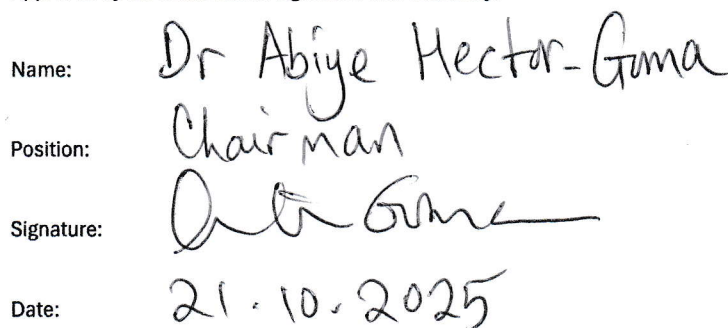 Name: Dr Abiye Hector-Goma
Position: Chairman
Signature: Goma
Date: 21.10.2025